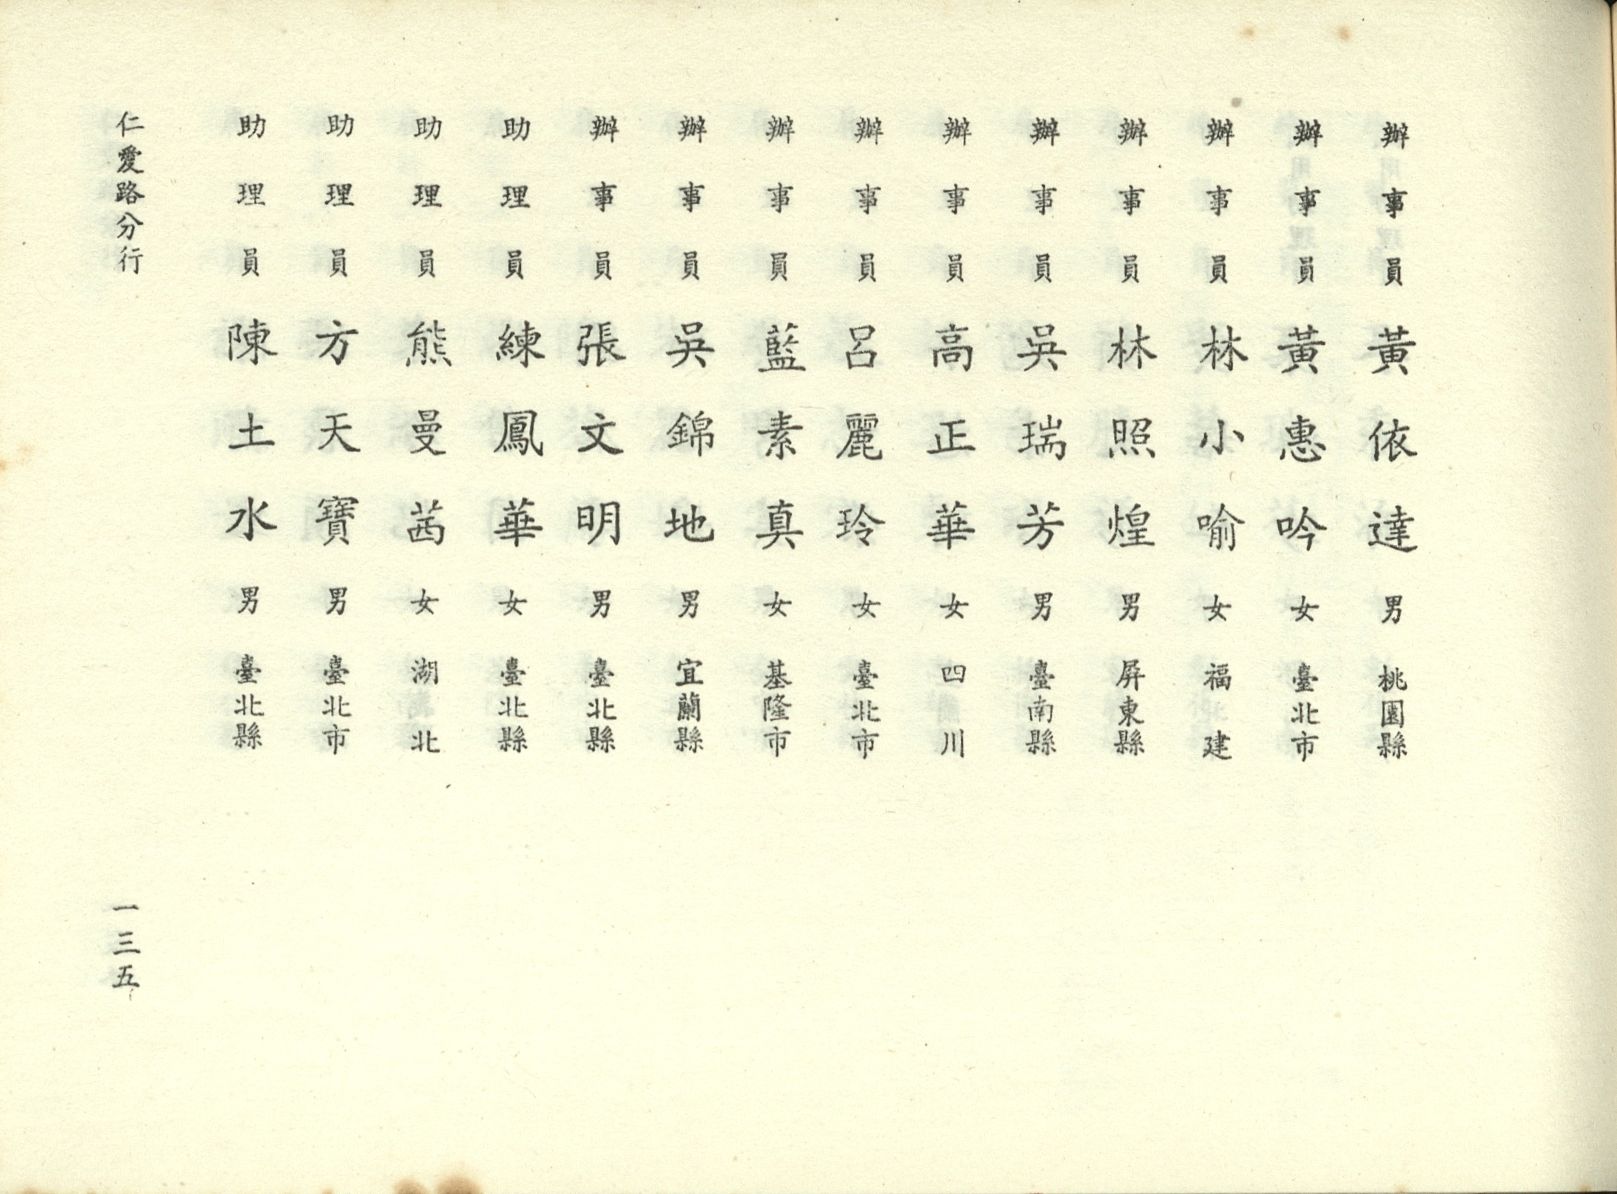 辦事員黃依達男桃園縣
辦事員黃惠吟女臺北市
辦事員林小喻女福建
辦事員林照煌男屏東縣
辦事員吳瑞芳男臺南縣
辦事員高正華女四川
辦事員呂麗玲女臺北市
辦事員藍素真女基隆市
辦事員吳錦地男宜蘭縣
辦事員張文明男臺北縣
助理員練鳳華女臺北縣
助理員熊曼茜女湖北
助理員方天寶男臺北市
助理員陳土水男臺北縣
仁愛路分行
一三五